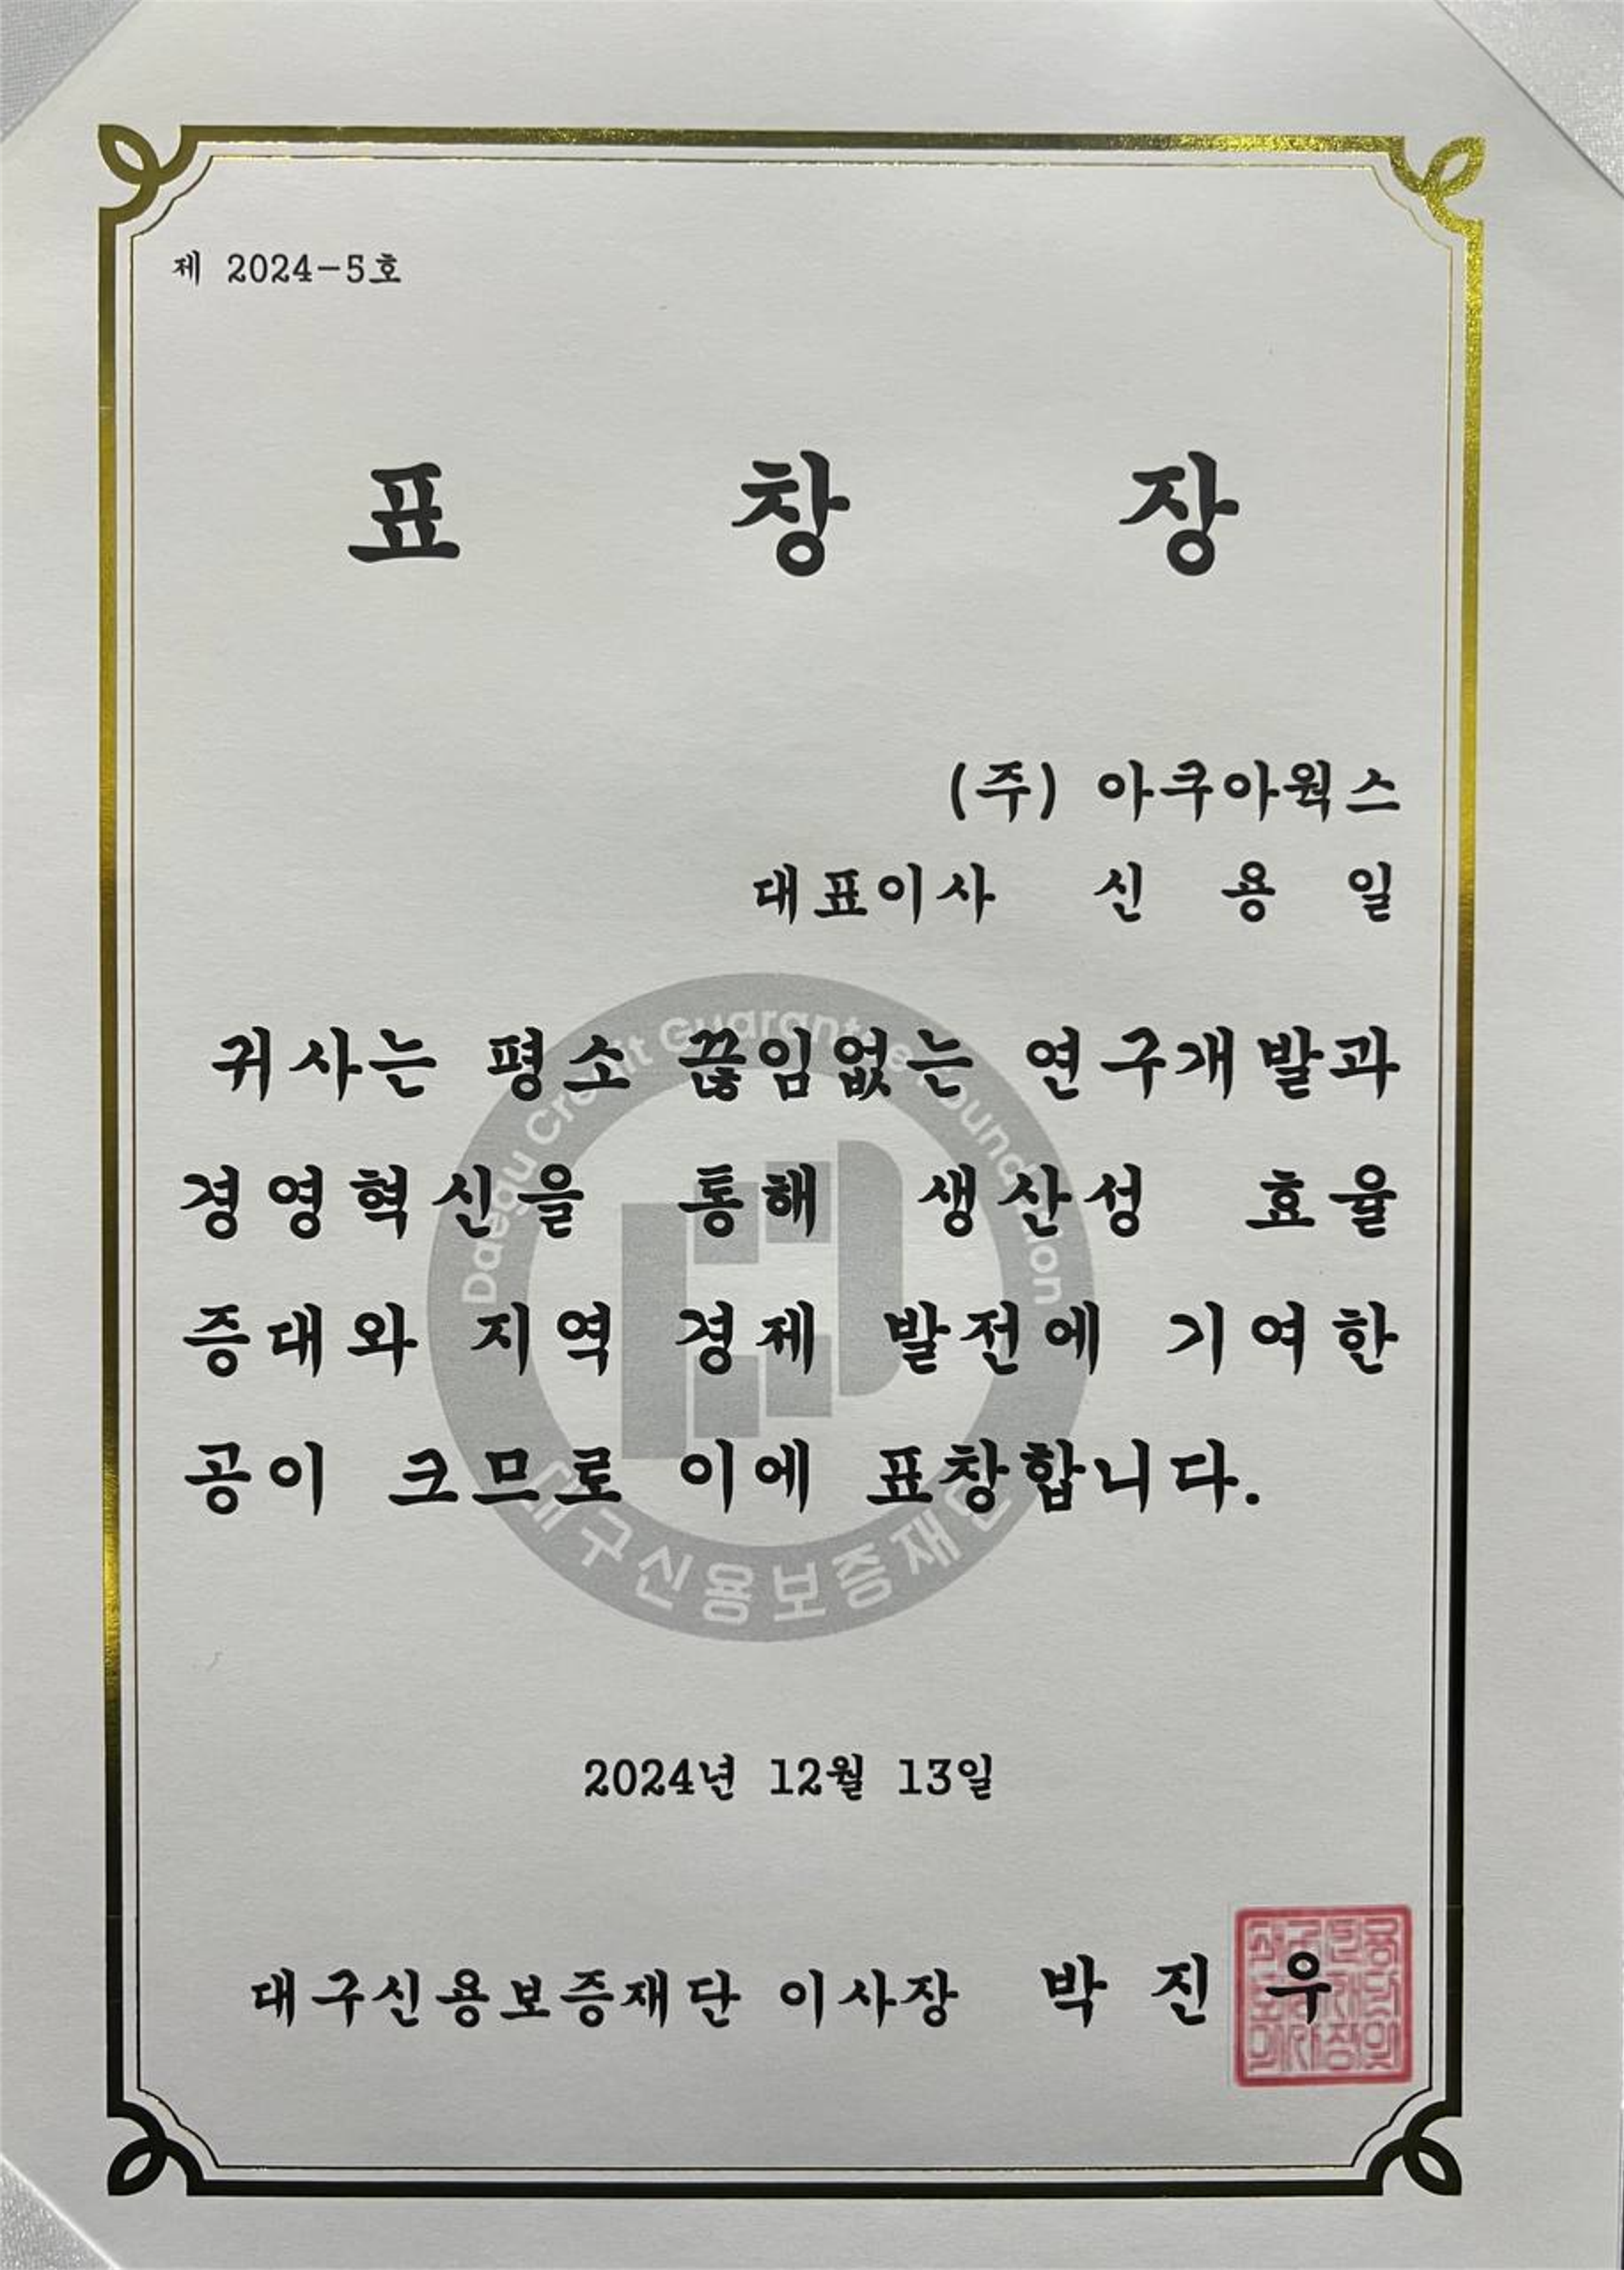 제 2024-5호
표 창 장
(주) 아쿠아웍스
대표이사 신 용 일
귀사는 평소 끊임없는 연구개발과
경영혁신을 통해 생산성 효율
증대와 지역 경제 발전에 기여한
공이 크므로 이에 표창합니다.
Daegu Credit Guarantee Foundation
대구신용보증재단
2024년 12월 13일
대구신용보증재단 이사장 박 진 우